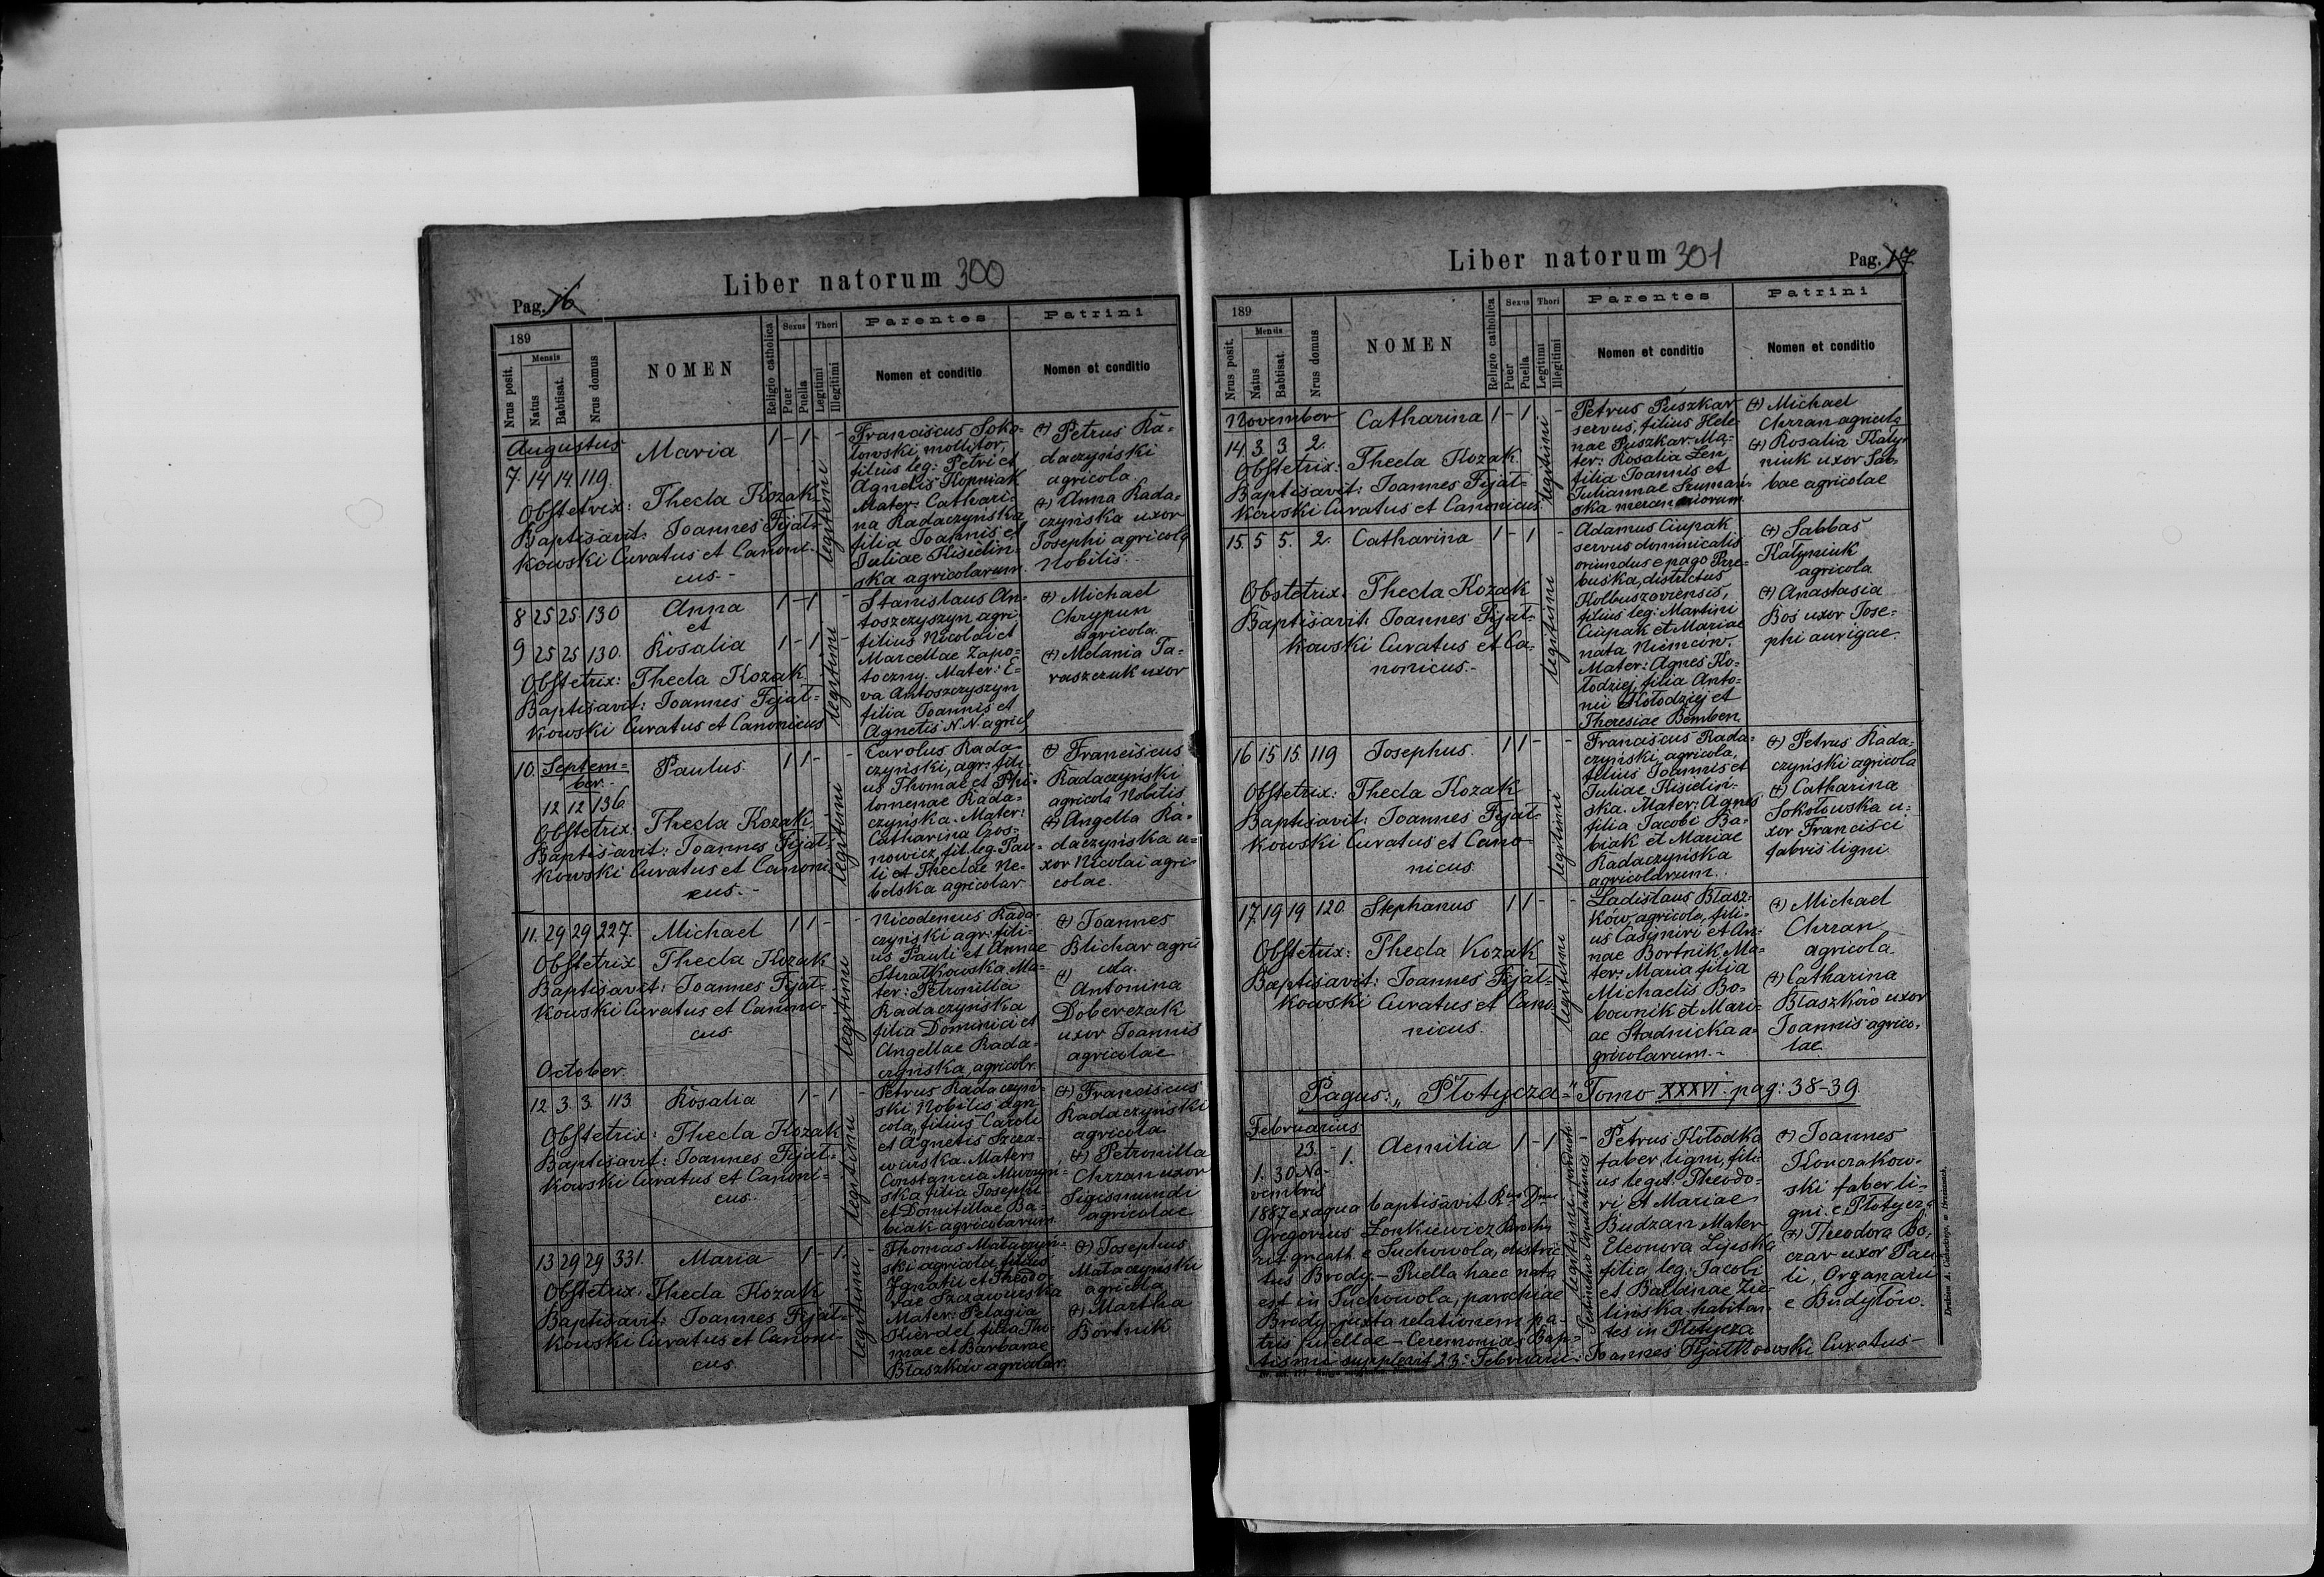 Liber natorum 300
Pag. 16
189
Mensis
Nrus posit.
Natus
Babtisat.
Nrus domus
NOMEN
Religio catholica
Sexus
Puer
Puella
Thori
Legitimi
Illegitimi
Parentes
Nomen et conditio
Patrini
Nomen et conditio
Augustus
7. 14 14. 119.
Maria
1 - 1 - -
Obstetrix: Thecla Kozak
Baptisavit: Joannes Fijał-
kowski Curatus et Canoni-
cus.-
legitimi
Franciscus Soko-
łowski, mollitor,
filius leg: Petri et
Agnetis Kopniak
Mater: Cathari-
na Radaczyńska
filia Joannis et
Juliae Kisielin-
ska agricolarum.
(+) Petrus Ra-
daczyński
agricola
(+) Anna Rada-
czyńska uxor
Josephi agricola
Nobilis.
8 25 25. 130
Anna
et
1 - 1 -
9 25 25 130.
Rosalia
1 - 1 -
Obstetrix: Thecla Kozak
Baptisavit: Joannes Fijał-
kowski Curatus et Canonicus
legitimi
Stanislaus An-
toszczyszyn agri.
filius Nicolai et
Marcellae Zapo-
toczny. Mater: E-
va Antoszczyszyn
filia Joannis et
Agnetis N.N. agricol
(+) Michael
Chrypun
agricola.
(+) Melania Ta-
raszczuk uxor
10. Septem-
ber.-
12 12 136
Paulus.
1 1 - -
Obstetrix: Thecla Kozak
Baptisavit: Joannes Fijał-
kowski Curatus et Canoni-
cus.-
legitimi
Carolus Rada-
czyński, agr: fili-
us Thomae et Phi-
lomenae Rada-
czyńska. Mater:
Catharina Czos-
nowicz, fil. leg. Pau-
li et Theclae Ne-
belska agricolar.
(+) Franciscus
Radaczyński
agricola Nobilis
(+) Angella Ra-
daczyńska u-
xor Nicolai agri-
colae.
11. 29 29 227.
Michael
1 1 - -
Obstetrix Thecla Kozak
Baptisavit: Joannes Fijał-
kowski Curatus et Canoni-
cus
legitimi
Nicodemus Rada-
czyński agr: fili-
us Pauli et Annae
Strutkowska Ma-
ter: Petronilla
Radaczyńska
filia Dominici et
Angellae Rada-
czyńska, agricolr.
(+) Joannes
Blichar agri-
cola.
(+) Antonina
Doberczak
uxor Joannis
agricolae
October.
12. 3. 3. 113.
Rosalia
1 - 1 -
Obstetrix: Thecla Kozak
Baptisavit: Joannes Fijał-
kowski Curatus et Canoni-
cus.
legitimi
Petrus Radaczyń-
ski Nobilis agri-
cola, filius Caroli
et Agnetis Szcza-
wurska. Mater:
Constancia Murzyn-
ska filia Josephi
et Domitillae Ba-
biak agricolarum.
(+) Franciscus
Radaczyński
agricola
(+) Petronilla
Chrzan uxor
Sigismundi
agricolae
13 29 29 331.
Maria
1 - 1 -
Obstetrix: Thecla Kozak
Baptisavit: Joannes Fijał-
kowski Curatus et Canoni-
cus.
legitimi
Thomas Mataczyn-
ski agricola, filius
Ignatii et Theodo-
rae Szczawurska
Mater: Pelagia
Hierdel filia Tho-
mae et Barbarae
Błaszków agricolar.
(+) Josephus
Mataczyński
agricola
(+) Martha
Bortnik
Liber natorum 301
Pag. 17
189
Mensis
Nrus posit.
Natus
Babtisat.
Nrus domus
NOMEN
Religio catholica
Sexus
Puer
Puella
Thori
Legitimi
Illegitimi
Parentes
Nomen et conditio
Patrini
Nomen et conditio
November
14 3. 3 2.
Catharina
1 - 1 -
Obstetrix: Thecla Kozak
Baptisavit: Joannes Fijał-
kowski Curatus et Canonicus.
legitimi
Petrus Puszkar
servus, filius Hele-
nae Puszkar. Ma-
ter: Rosalia Żen
filia Joannis et
Juliannae Szuman-
ska
(+) Michael
Chrzan agricola
(+) Rosalia Kały-
niuk uxor Sab-
bae agricolae
15. 5 5. 2.
Catharina
1 - 1 -
Obstetrix: Thecla Kozak
Baptisavit: Joannes Fijał-
kowski Curatus et Ca-
nonicus.-
legitimi
Adamus Ciupak
servus dominicalis
oriundus e pago Prze-
buska, districtus
Kolbuszoviensis,
filius leg: Martini
Ciupak et Mariae
nata Niemców.
Mater: Agnes Ko-
łodziej, filia Anto-
nii Kołodziej et
Theresiae Bemben.
(+) Sabbas
Kałyniuk
agricola
(+) Anastasia
Bos uxor Jose-
phi aurigae.
16 15 15. 119
Josephus.
1 1 - -
Obstetrix: Thecla Kozak
Baptisavit: Joannes Fijał-
kowski Curatus et Cano-
nicus.
legitimi
Franciscus Rada-
czyński, agricola,
filius Joannis et
Juliae Kisielin-
ska. Mater: Agnes
filia Jacobi Ba-
biak et Mariae
Radaczyńska
agricolarum.
(+) Petrus Rada-
czyński agricola
(+) Catharina
Sokołowska u-
xor Francisci
fabris ligni.
17. 19 19 120.
Stephanus
1 1 - -
Obstetrix: Thecla Kozak
Baptisavit: Joannes Fijał-
kowski Curatus et Cano-
nicus.
legitimi
Ladislaus Błasz-
ków agricola, fili-
us Casimiri et An-
nae Bortnik. Ma-
ter: Maria filia
Michaelis Bo-
bownik et Mari-
ae Stadnicka a-
gricolarum.-
(+) Michael
Chrzan
agricola
(+) Catharina
Błaszków uxor
Joannis agrico-
lae.
Pagus: „Płotycza" Tomo XXXVI. pag: 38-39.
Februarius
23. - 1.
Aemilia
1 - 1 -
1. 30. No-
vembris
1887 ex aqua baptisavit Rdus Dnus
Gregorius Żonkiewicz
rit. gr. cath. e Suchowola, distric-
tus Brody.- Puella haec nata
est in Suchowola, parochiae
Brody - juxta relationem pa-
tris puellae - Ceremonias Bap-
tismi supplevit 23. Februarii: Joannes Fijałkowski Curatus-
Petrus Kołodka
faber ligni, fili-
us legit: Theodo-
ri et Mariae
Budzan. Mater
Eleonora Lipska
filia leg: Jacobi
et Balbinae Zie-
linska habitan-
tes in Płotycza
(+) Joannes
Konczakow-
ski faber li-
gni e Płotycza
(+) Theodora Bo-
czar uxor Pau-
li, Organarii
e Budyłów.